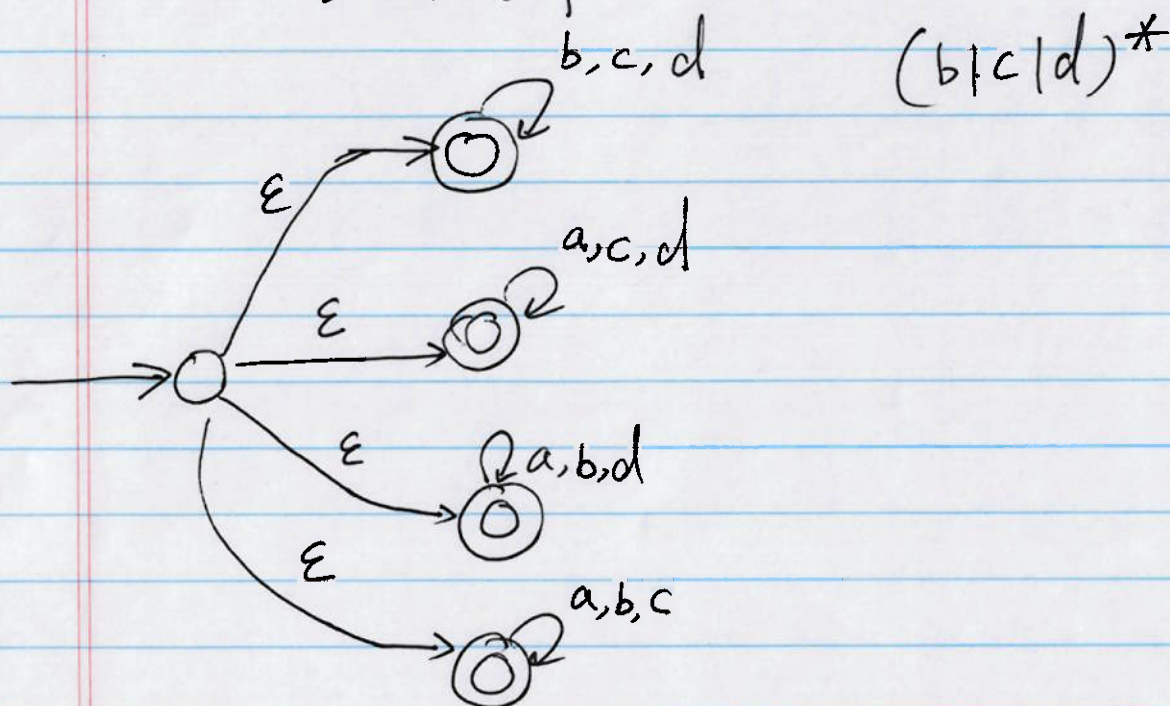 b, c, d
(b|c|d)*
ε
a,c,d
ε
ε
a,b,d
ε
a,b,c